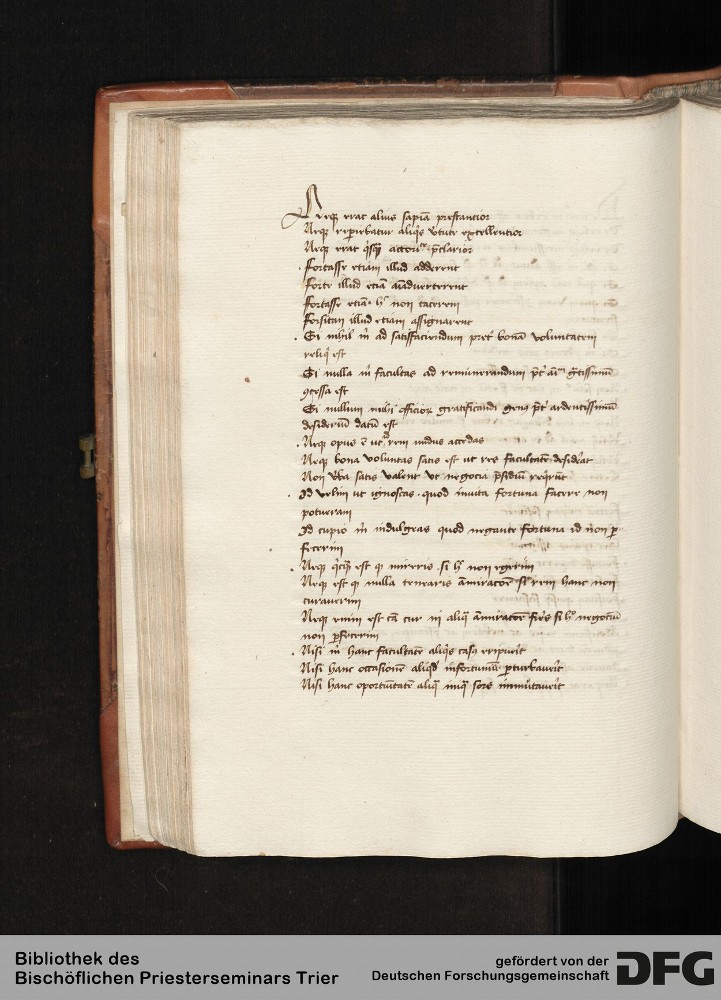 Neq erat alius sapia prestantior
Neq reperiebatur aliqs vtute excellentior
Neq erat qsq actoru pclarior
Fortasse etiam illud adderent
Forte illud etia aiaduerterent
Fortasse etia h non tacerem
Forsitan illud etiam assignarent
Et nihil m ad satisfaciendum pret bona voluntatem
reliqu est
Et nulla m facultas ad remunerandum pt gtissimu
gcessa est
Et nullum mihi officior gratificandi genus pt ardentissimu
desideriu datu est
Neq opus e ut rem nudus accedas
Neq bona voluntas satis est ut res facultate desidat
Non vba satis valent ut negocia psidiu reqrut
Id velim ut ignoscas quod inuita fortuna facere non
potueram
Id cupio m indulgeas quod negante fortuna id non p-
fecerim
Neq qcq est q mireris si h non egerim
Neq est q nulla tenearis amiracoe si rem hanc non
curauerim
Neq enim est ca cur in aliq amiracoe sis si h negociu
non pfecerim
Nisi m hanc facultate aliqs casus eripuerit
Nisi hanc occasione aliqd infortuniu pturbauerit
Nisi hanc oportuitate aliq iniq sors immutauerit
Bibliothek des
Bischöflichen Priesterseminars Trier
gefördert von der
Deutschen Forschungsgemeinschaft
DFG